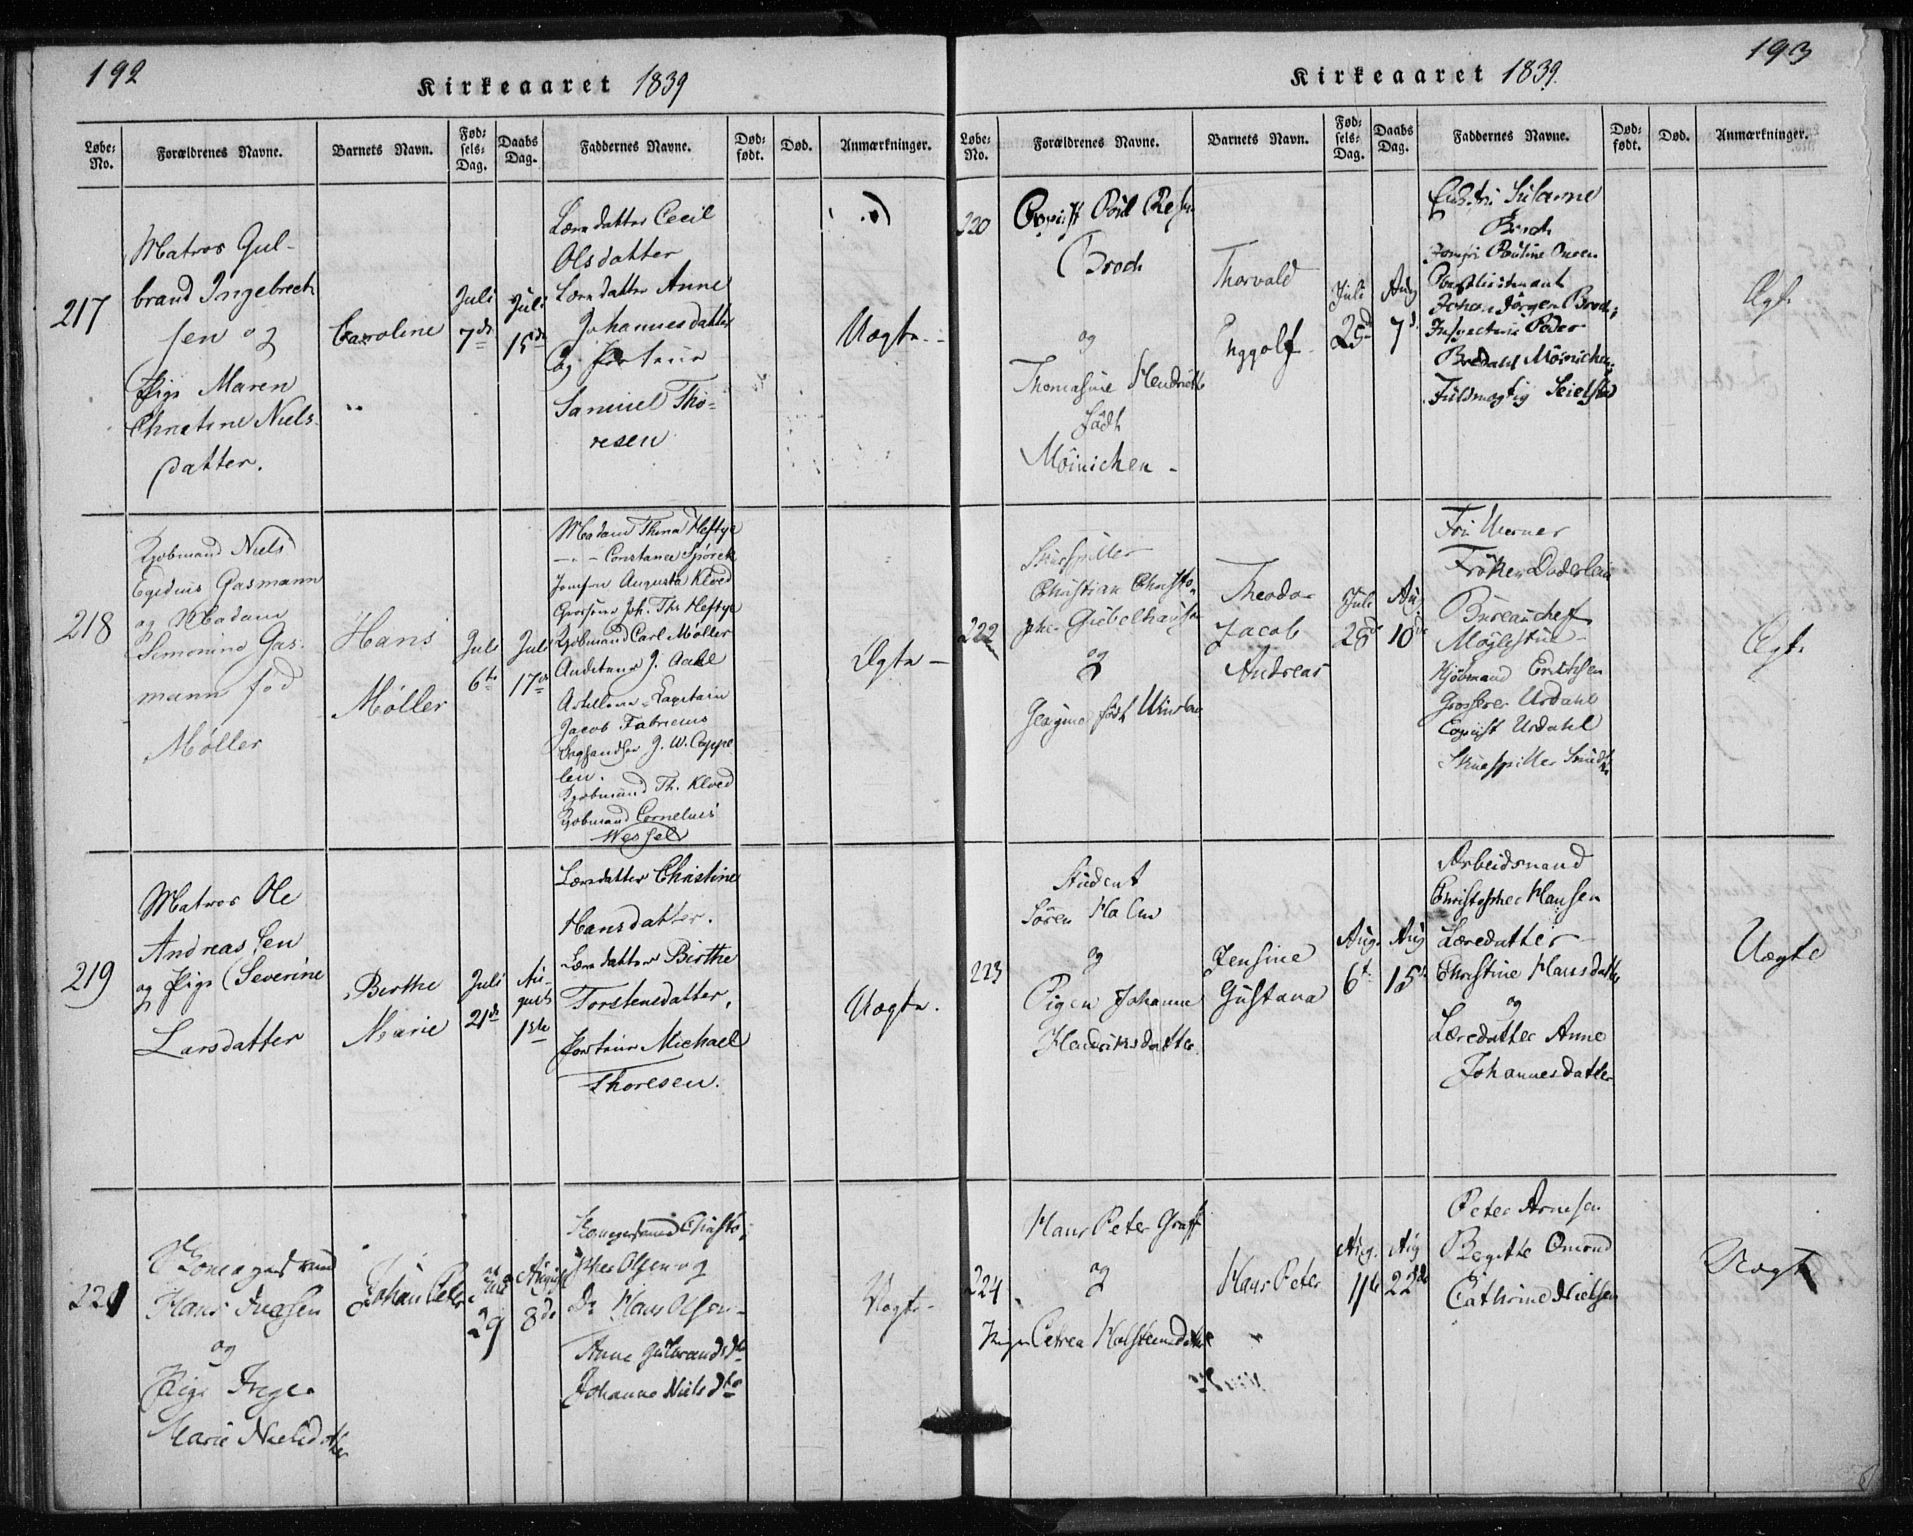 192
Kirkeaaret 1839
Løbe-No.
Forældrenes Navne.
Barnets Navn.
Fødselsdag.
Daabs Dag.
Faddernes Navne.
Dødfødt.
Død.
Anmærkninger.
217
Matros Gul-
brand Ingebrecht
sen og
Pige Maren
Christine Niels
datter.
Caroline
Juli
7de
Juli
15de
Læredatter Cecil
Olsdatter
Læredatter Anne
Johannesdatter
og Porteur
Samuel Tho-
resen
Uægte
218
Kjøbmand Niels
Egidius Gasmann
og Madam
Simonine Gas-
mann fød
Møller
Hans
Møller
Juli
6te
Juli
17de
Madam Thrina Heftye
— Constance Spørck
Jomfru Augusta Kloed
Grosserer Joh. Ths Heftye
Kjøbmand Carl Møller
Auditeur J. Aall
Artillerie-Kapitain
Jacob Fabricius
Boghandler J. W. Cappe
len.
Kjøbmand Th. Kloed
Kjøbmand Cornelius
Wessel
Ægte
219
Matros Ole
Andreassen
og Pige Severine
Larsdatter
Berthe
Marie
Juli
21de
Au-
gust
1ste
Læredatter Christine
Hansdatter.
Læredatter Birthe
Torstensdatter,
Porteur Michael
Thoresen.
Uægte.
221
Hans
og
Pige Inge
Marie Nielsdatter
Johan Peter
Juli
29
August
8de
Christo-
pher Olsen og
Do Hans Olsen
Anne Gulbrandsdtr
Johanne Nielsdtr
Uægte
193
Kirkeaaret 1839.
Løbe-No.
Forældrenes Navne.
Barnets Navn.
Fødselsdag.
Daabs Dag.
Faddernes Navne.
Dødfødt.
Død.
Anmærkninger.
220
Copiist Poul
Broch
og
Thomasine Hendrette
født
Møinichen
Thorvald
Inggolf
Juli
25d
Aug
7d
Susanne
Broch
Jomfru Pauline
Oberstlieutenant
Johan Jørgen Broch,
Inspecteur Peder
Bredahl Møinichen,
Fuldmægtig Seielsted
Ægte
222
Skuespiller
Christian Christo-
pher Giebelhausen
og
Georgine født Winsløv
Theodor
Jacob
Andreas
Juli
28de
Aug
10de
Fru Werner
Frøken Døderlein
Bureauchef
Møglestue
Kjøbmand Erichsen
Grosserer Urdahl
Copiist Urdahl
Skuespiller Smidth
Ægte
223
Student
Søren Holm
og
Pigen Johanne
Hendriksdatter
Jensine
Gustava
Aug.
6t
Aug
15t
Arbeidsmand
Christopher Hansen
Læredatter
Christine Hansdatter
og
Læredatter Anne
Johannesdatter
Uægte
224
Hans Peter Graff
og
Pige Petrea Holstensdatter
Hans Peter
Aug.
11te
Aug
22de
Peter Arnesen
Begitte Omond
Cathrine Nielsen
Uægte